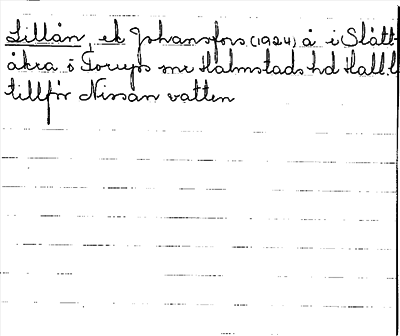 Lillån, ek Johansfors (1924) å i Slätt-
åkra o Torups snr Halmstads hd Hall. l
tillför Nissan vatten